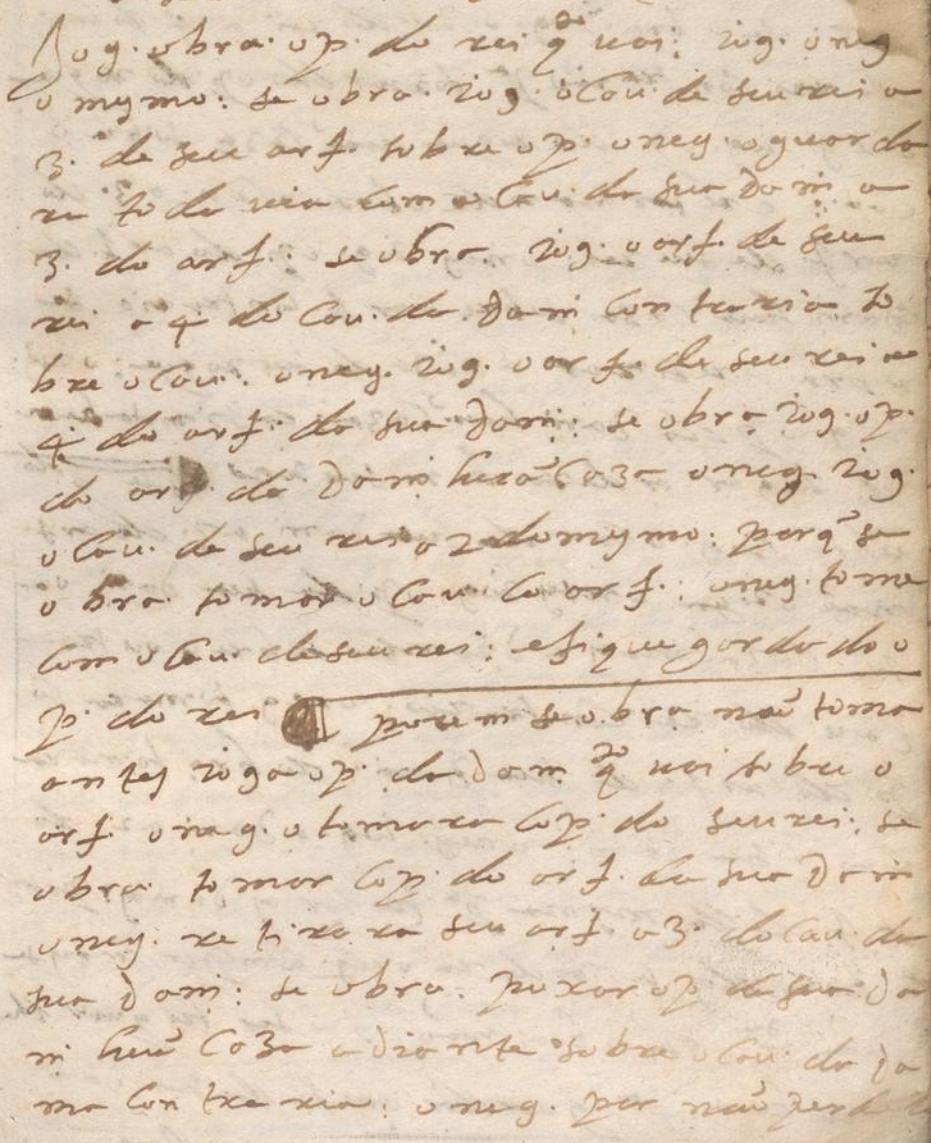 Jog. obra. o p. do rei q̃ uai: iog. o neg
o mymo: se obra. iog. o Cau. de seu rei a
3. de seu arf. sobre o p. o neg. o guarda
ra toda uia com o Cau. da sua Dam a
3. do arf.: se obra. iog. o arf. de seu
rei a 4 do Cau. da Dam Contraria so
bre o Cau.: o neg. iog. o arf. de seu rei a
4. do arf. da sua Dam: se obra iog. o p.
do arf. da Dam huã Caza o neg. iog.
o Cau. de seu rei a 2 do mymo: porq̃ se
o bra. tomar o Cau. Co arf.: o neg. tome
Com o Cau. de seu rei: e fique gardado o
p. do rei porem se o bra naũ toma
antes ioga o p. da Dam q̃ uai sobre o
arf. o neg. o tomara Co p. do seu rei: se
o bra. tomar Co p. do arf. da sua Dam
o neg. retirara seu arf. a 3. do Cau. da
sua Dam: se o bra. puxar o p. de sua Da
m huã Caza adiante sobre o Cau. da Da
ma Contraria: o neg. por naũ perder